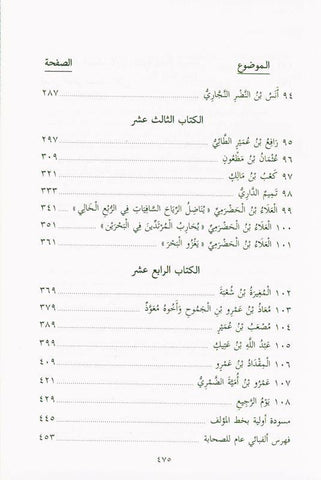 الموضوع الصفحة
٩٤ أَنَسُ بْنُ النَّضْرِ النَّجَّارِيُّ ٢٨٧
الكتاب الثالث عشر
٩٥ رَافِعُ بْنُ عُمَيْرٍ الطَّائِيُّ ٢٩٧
٩٦ عُثْمَانُ بْنُ مَظْعُونٍ ٣٠٩
٩٧ كَعْبُ بْنُ مَالِكٍ ٣٢١
٩٨ تَمِيمٌ الدَّارِيُّ ٣٣٣
٩٩ الْعَلَاءُ بْنُ الْحَضْرَمِيِّ «يُنَاضِلُ الرِّيَاحَ السَّافِيَاتِ فِي الرُّبْعِ الْخَالِي» ٣٤١
١٠٠ الْعَلَاءُ بْنُ الْحَضْرَمِيِّ «يُحَارِبُ الْمُرْتَدِّينَ فِي الْبَحْرَيْنِ» ٣٥١
١٠١ الْعَلَاءُ بْنُ الْحَضْرَمِيِّ «يَغْزُو الْبَحْرَ» ٣٦١
الكتاب الرابع عشر
١٠٢ الْمُغِيرَةُ بْنُ شُعْبَةَ ٣٦٩
١٠٣ مُعَاذُ بْنُ عَمْرِو بْنِ الْجَمُوحِ وَأَخُوهُ مُعَوِّذٌ ٣٧٩
١٠٤ مُصْعَبُ بْنُ عُمَيْرٍ ٣٨٩
١٠٥ عَبْدُ اللَّهِ بْنُ عَتِيكٍ ٣٩٩
١٠٦ الْمِقْدَادُ بْنُ عَمْرٍو ٤٠٩
١٠٧ عَمْرُو بْنُ أُمَيَّةَ الضَّمْرِيُّ ٤٢١
١٠٨ يَوْمُ الرَّجِيعِ ٤٢٩
مسودة أولية بخط المؤلف ٤٤٥
فهرس ألفبائي عام للصحابة ٤٥٣
٤٧٥